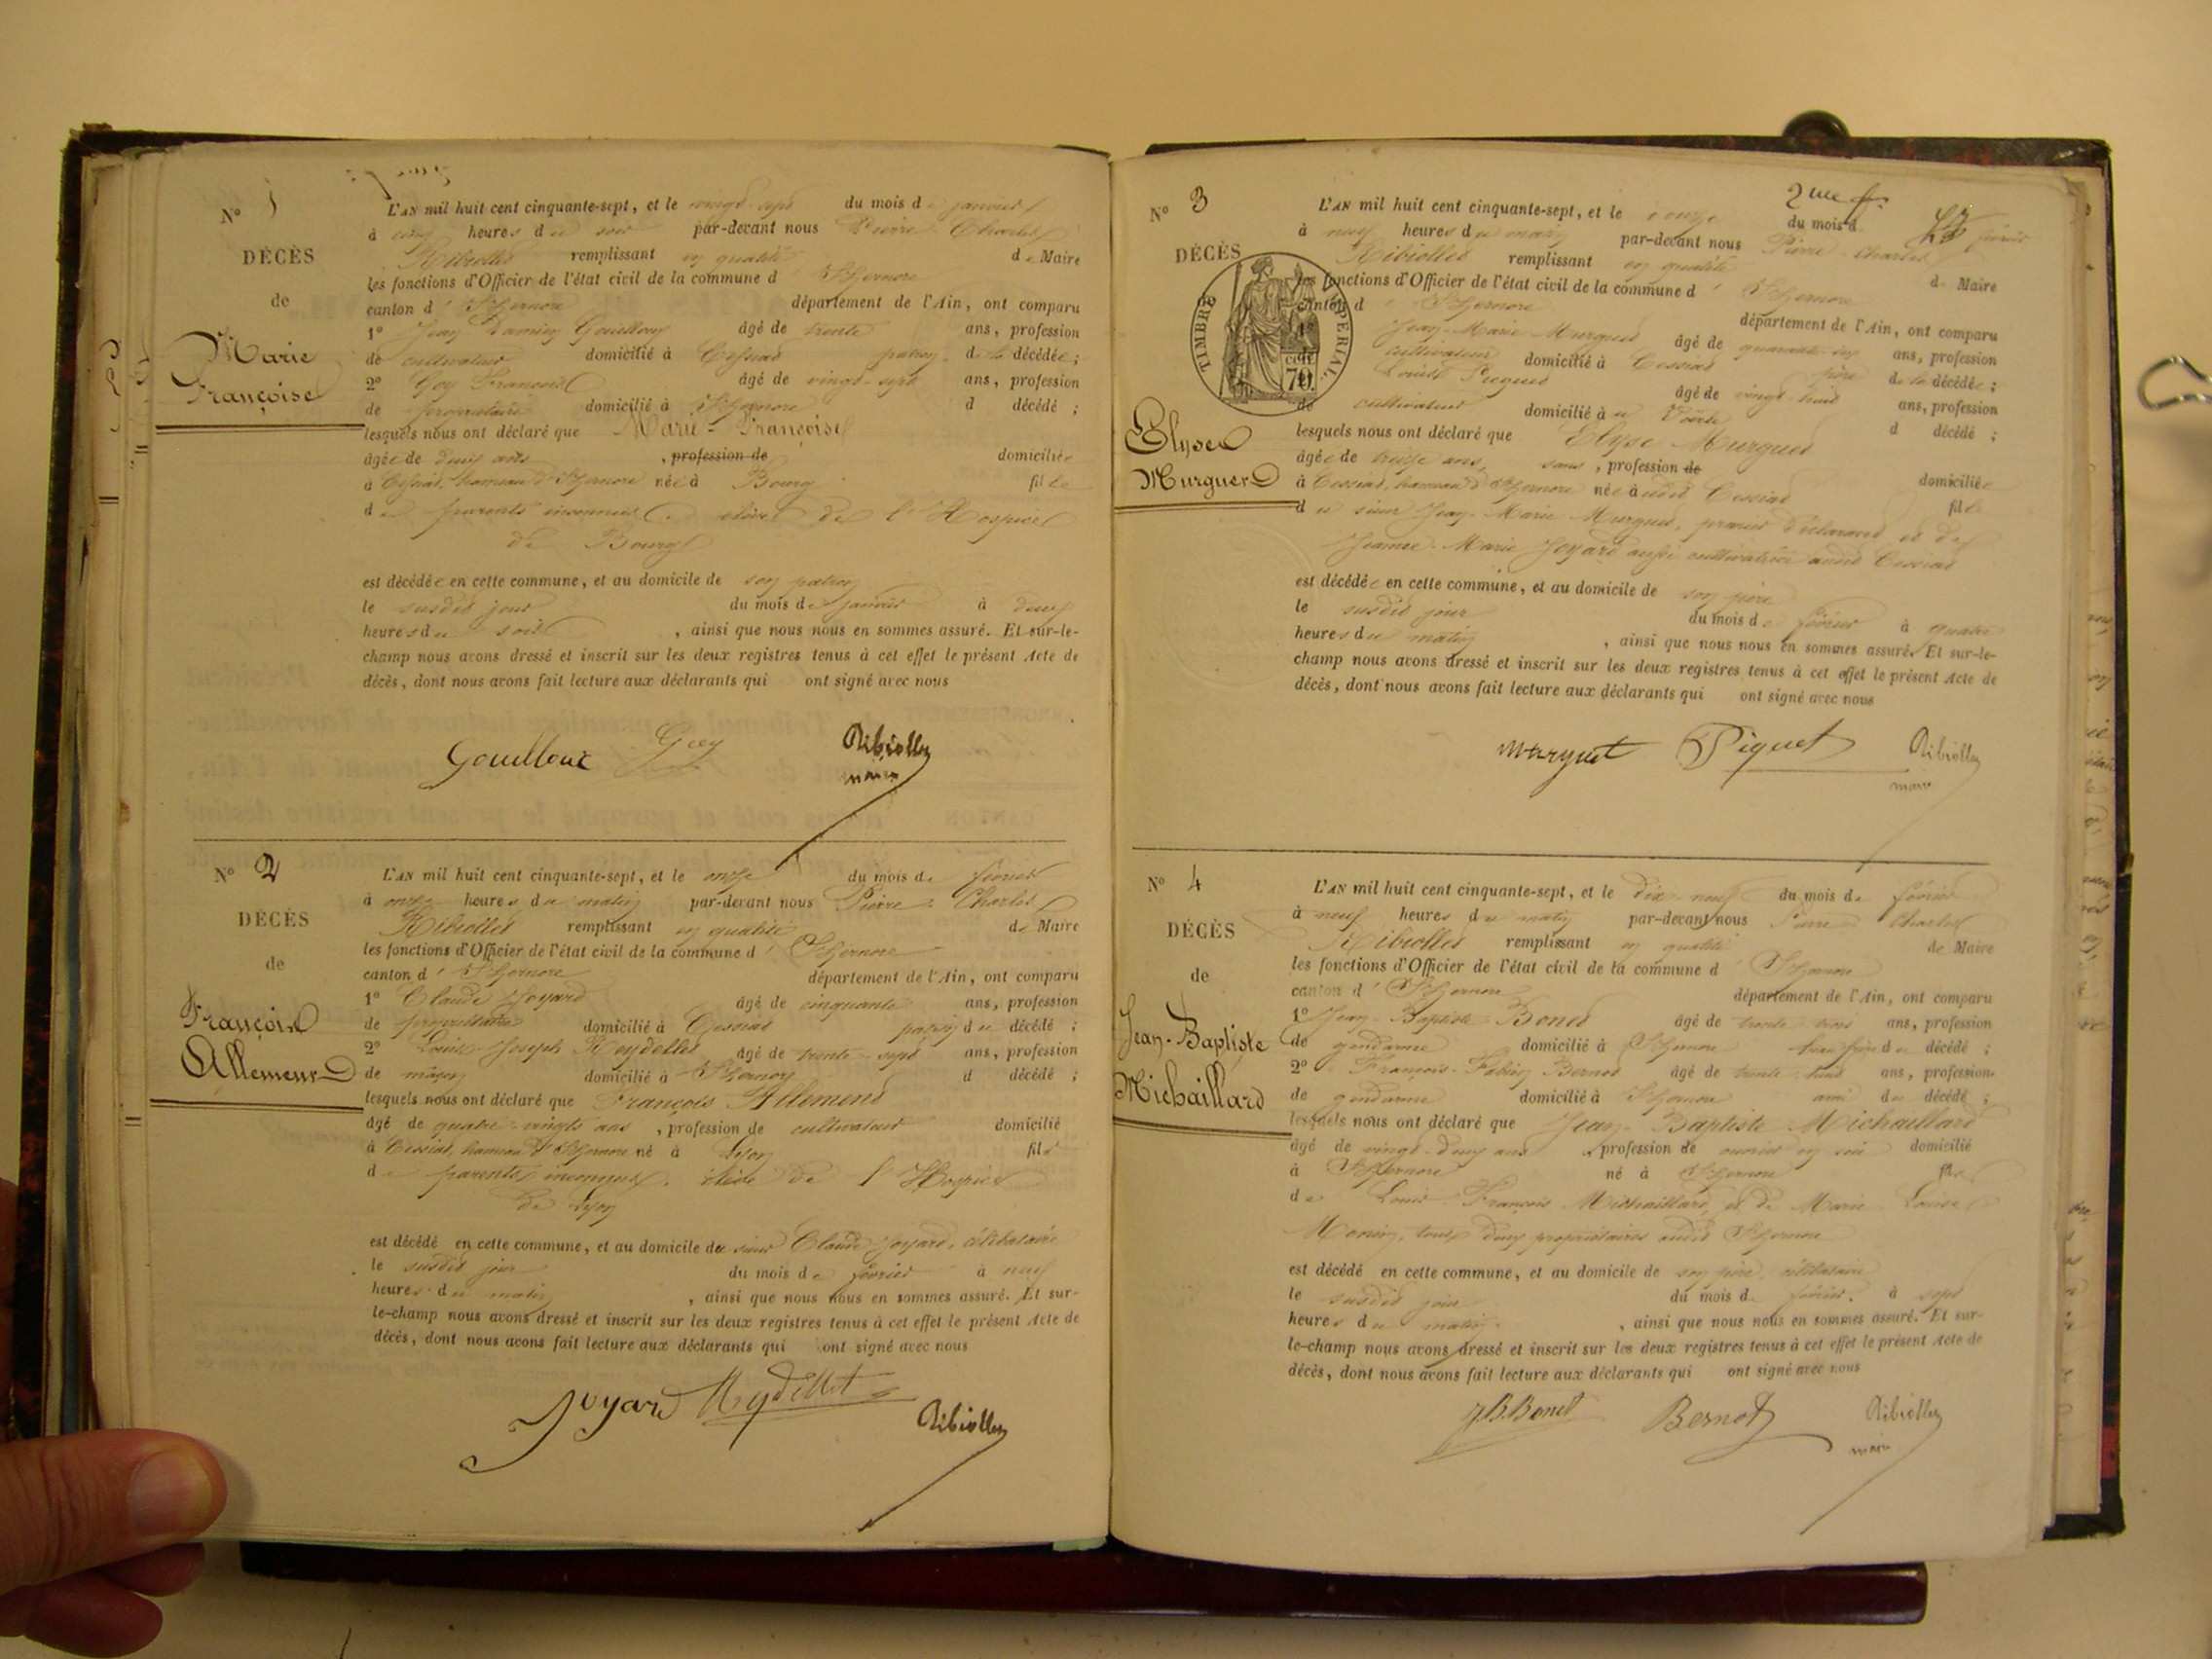 N° 1
DÉCÈS
de
Marie
Françoise
L'AN mil huit cent cinquante-sept, et le vingt-sept du mois de janvier
à cinq heures du soir par-devant nous Pierre Charles
Ribiollet remplissant en qualité de Maire
les fonctions d'Officier de l'état civil de la commune d'Izernore
canton d'Izernore département de l'Ain, ont comparu
1° Jean Gouilloux âgé de trente ans, profession
de cultivateur domicilié à Cessiat patron de la décédée ;
2° Goy François âgé de vingt-sept ans, profession
de propriétaire domicilié à Izernore d décédé ;
lesquels nous ont déclaré que Marie-Françoise
âgée de deux ans , profession de domiciliée
à Cessiat, hameau d'Izernore née à Bourg fille
de parents inconnus élève de l'Hospice
de Bourg
est décédée en cette commune, et au domicile de son patron
le susdit jour du mois de janvier à deux
heures du soir , ainsi que nous nous en sommes assuré. Et sur-le-
champ nous avons dressé et inscrit sur les deux registres tenus à cet effet le présent Acte de
décès, dont nous avons fait lecture aux déclarants qui ont signé avec nous
Gouilloux Goy Ribiollet
maire
N° 2
DÉCÈS
de
François
Allemend
L'AN mil huit cent cinquante-sept, et le onze du mois de février
à onze heures du matin par-devant nous Pierre Charles
Ribiollet remplissant en qualité de Maire
les fonctions d'Officier de l'état civil de la commune d'Izernore
canton d'Izernore département de l'Ain, ont comparu
1° Claude Joyard âgé de cinquante ans, profession
de propriétaire domicilié à Cessiat patron du décédé ;
2° Louis-Joseph Reydellet âgé de trente-sept ans, profession
de maçon domicilié à Izernore d décédé ;
lesquels nous ont déclaré que François Allemend
âgé de quatre-vingts ans , profession de cultivateur domicilié
à Cessiat, hameau d'Izernore né à Lyon fils
de parents inconnus, élève de l'Hospice
de Lyon
est décédé en cette commune, et au domicile du sieur Claude Joyard, célibataire
le susdit jour du mois de février à neuf
heures du matin , ainsi que nous nous en sommes assuré. Et sur-
le-champ nous avons dressé et inscrit sur les deux registres tenus à cet effet le présent Acte de
décès, dont nous avons fait lecture aux déclarants qui ont signé avec nous
Joyard Reydellet Ribiollet
2me f.
N° 3
DÉCÈS
TIMBRE IMPÉRIAL
70
Elyse
Murguet
L'AN mil huit cent cinquante-sept, et le du mois de février
à neuf heures du matin par-devant nous Pierre Charles
Ribiollet remplissant en qualité de Maire
les fonctions d'Officier de l'état civil de la commune d'Izernore
canton d'Izernore département de l'Ain, ont comparu
Jean-Marie Murguet âgé de ans, profession
cultivateur domicilié à Cessiat père de la décédée ;
Louis Piquet âgé de vingt-huit ans, profession
de cultivateur domicilié à d décédé ;
lesquels nous ont déclaré que Elyse Murguet
âgée de treize ans, sans , profession de domiciliée
à Cessiat, hameau d'Izernore née audit Cessiat fille
du sieur Jean-Marie Murguet, premier déclarant et de
Jeanne-Marie Joyard aussi cultivatrice audit Cessiat
est décédée en cette commune, et au domicile de son père
le susdit jour du mois de février à quatre
heures du matin , ainsi que nous nous en sommes assuré. Et sur-le-
champ nous avons dressé et inscrit sur les deux registres tenus à cet effet le présent Acte de
décès, dont nous avons fait lecture aux déclarants qui ont signé avec nous
Murguet Piquet Ribiollet
maire
N° 4
DÉCÈS
de
Jean-Baptiste
Michaillard
L'AN mil huit cent cinquante-sept, et le dix-neuf du mois de février
à neuf heures du matin par-devant nous Pierre Charles
Ribiollet remplissant en qualité de Maire
les fonctions d'Officier de l'état civil de la commune d'Izernore
canton d'Izernore département de l'Ain, ont comparu
1° Jean-Baptiste Bonet âgé de trente-trois ans, profession
de gendarme domicilié à Izernore beau frère du décédé ;
2° François Bernot âgé de trente-huit ans, profession
de gendarme domicilié à Izernore ami du décédé ;
lesquels nous ont déclaré que Jean-Baptiste Michaillard
âgé de vingt-deux ans , profession de ouvrier en soie domicilié
à Izernore né à Izernore fils
de Louis-François Michaillard, et de Marie Louise
Monin, tous deux propriétaires audit Izernore
est décédé en cette commune, et au domicile de son père, célibataire
le susdit jour du mois de février à sept
heures du matin , ainsi que nous nous en sommes assuré. Et sur-
le-champ nous avons dressé et inscrit sur les deux registres tenus à cet effet le présent Acte de
décès, dont nous avons fait lecture aux déclarants qui ont signé avec nous
JB Bonet Bernot Ribiollet
maire